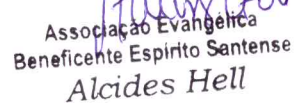 Associação Evangélica
Beneficente Espirito Santense
Alcides Hell